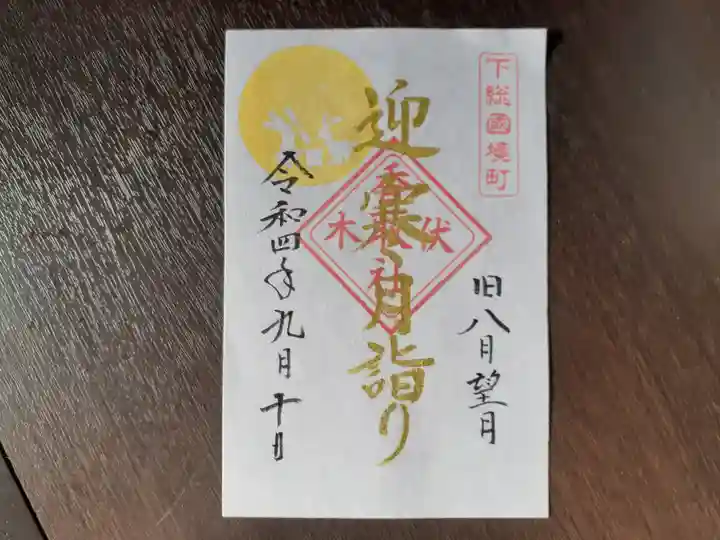 下総國境町
旧八月望月
迎寒月詣り
伏木
香取社
令和四年九月十日